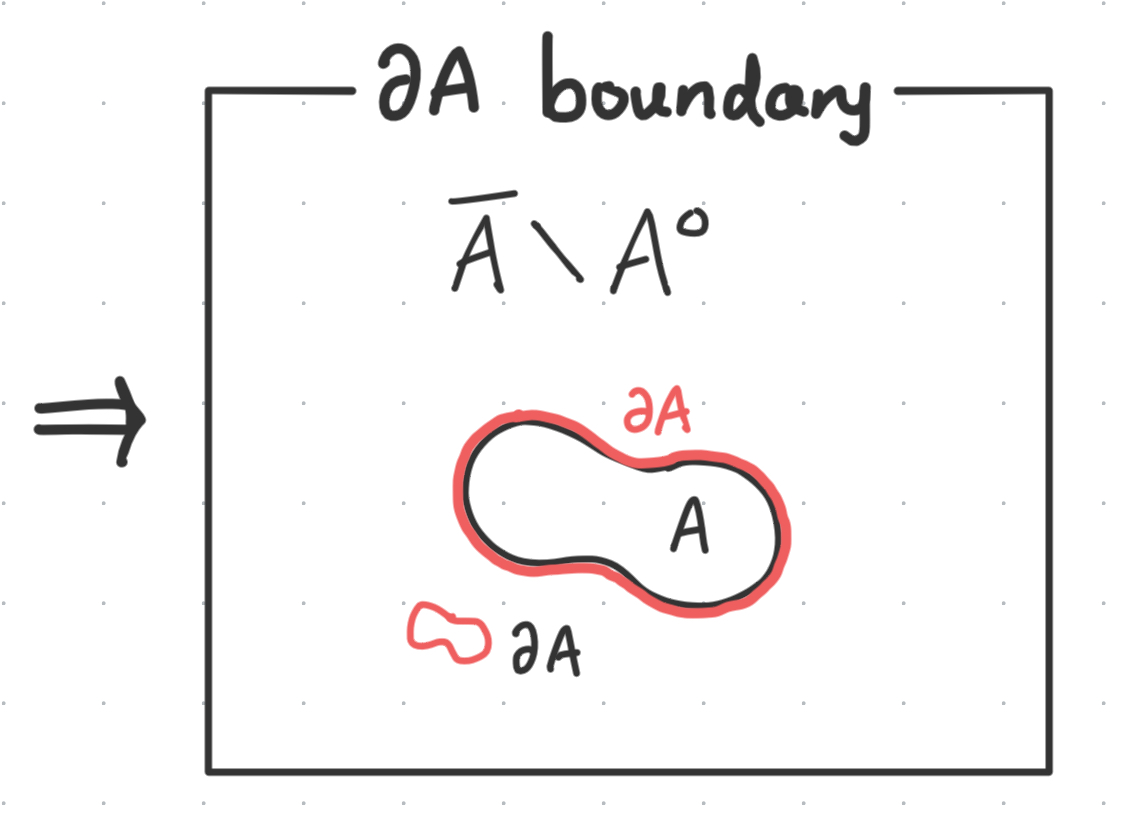 ∂A boundary
A̅ \ A°
⇒
∂A
A
∂A